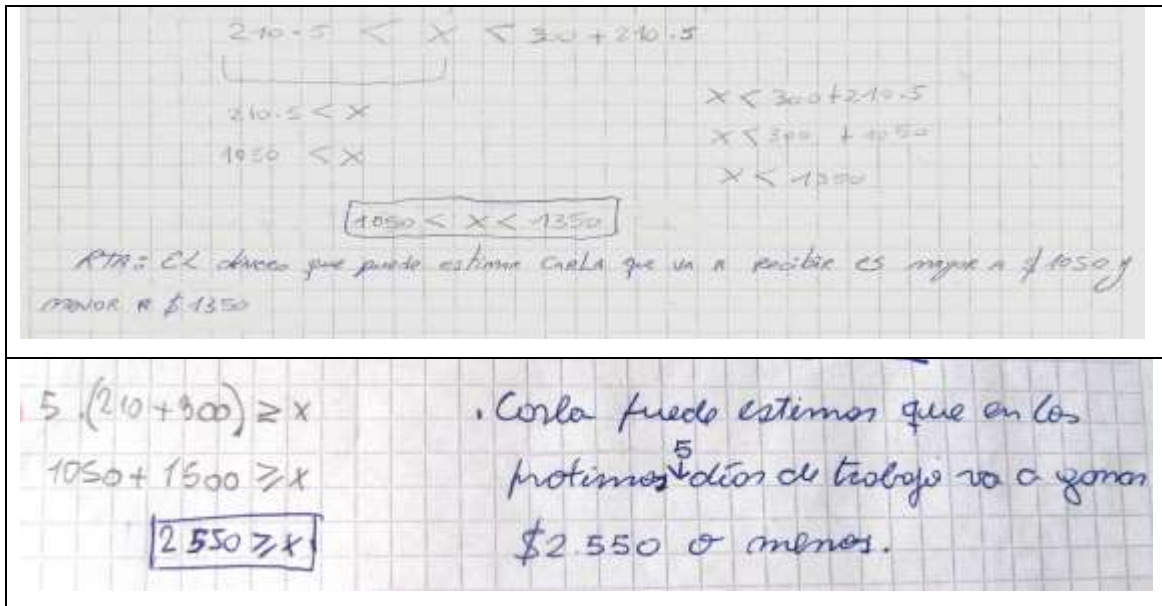 210.5 < X < 300 + 210.5
210.5 < X
1050 < X
X < 300+210.5
X < 300 + 1050
X < 1350
1050 < X < 1350
RTA: EL dinero que puede estimar CARLA que va a recibir es mayor a $1050 y
menor a $1350
5.(210+300) ≥ x
1050+1500 ≥ x
2550 ≥ x
. Carla puede estimar que en los
5
protimos días de trabajo va a ganar
$2.550 o menos.